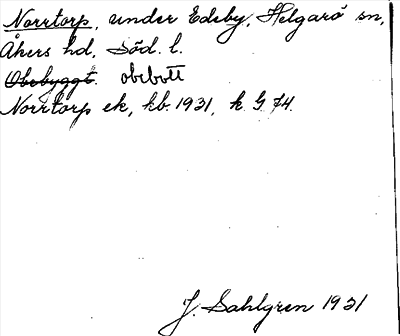 Norrtorp, under Edeby, Helgarö sn,
Åkers hd, Söd. l.
Obebyggt. obebott
Norrtorp ek, kb. 1931, k G 74.
J. Sahlgren 1931